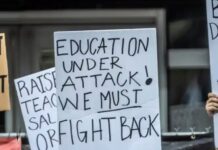 EDUCATION
UNDER
ATTACK!
WE MUST
FIGHT BACK
RAISE
TEAC
SAL
OR